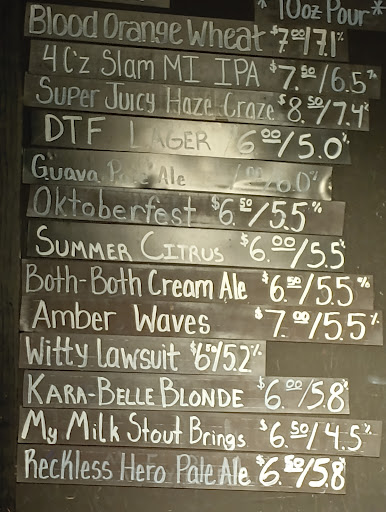 * 10oz Pour*
Blood Orange Wheat $7.00/7.1%
4 C'z Slam MI IPA $7.50/6.5%
Super Juicy Haze Craze $8.50/7.4%
DTF LAGER 6.00/5.0%
Guava Ale
Oktoberfest $6.50/5.5%
SUMMER CITRUS $6.00/5.5%
Both-Both Cream Ale $6.50/5.5%
Amber Waves $7.00/5.5%
Witty Lawsuit $6.50/5.2%
KARA-BELLE BLONDE $6.00/5.8%
My Milk Stout Brings $6.50/4.5%
Reckless Hero Pale Ale $6.50/5.8%